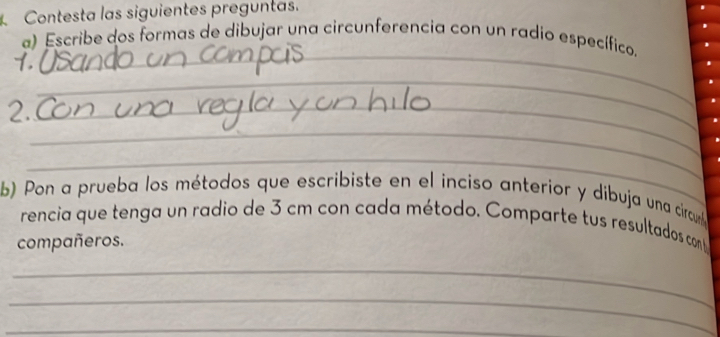 Contesta las siguientes preguntas.
a) Escribe dos formas de dibujar una circunferencia con un radio específico.
1. Usando un compas
2. Con una regla y un hilo
b) Pon a prueba los métodos que escribiste en el inciso anterior y dibuja una
rencia que tenga un radio de 3 cm con cada método. Comparte tus resultados con
compañeros.